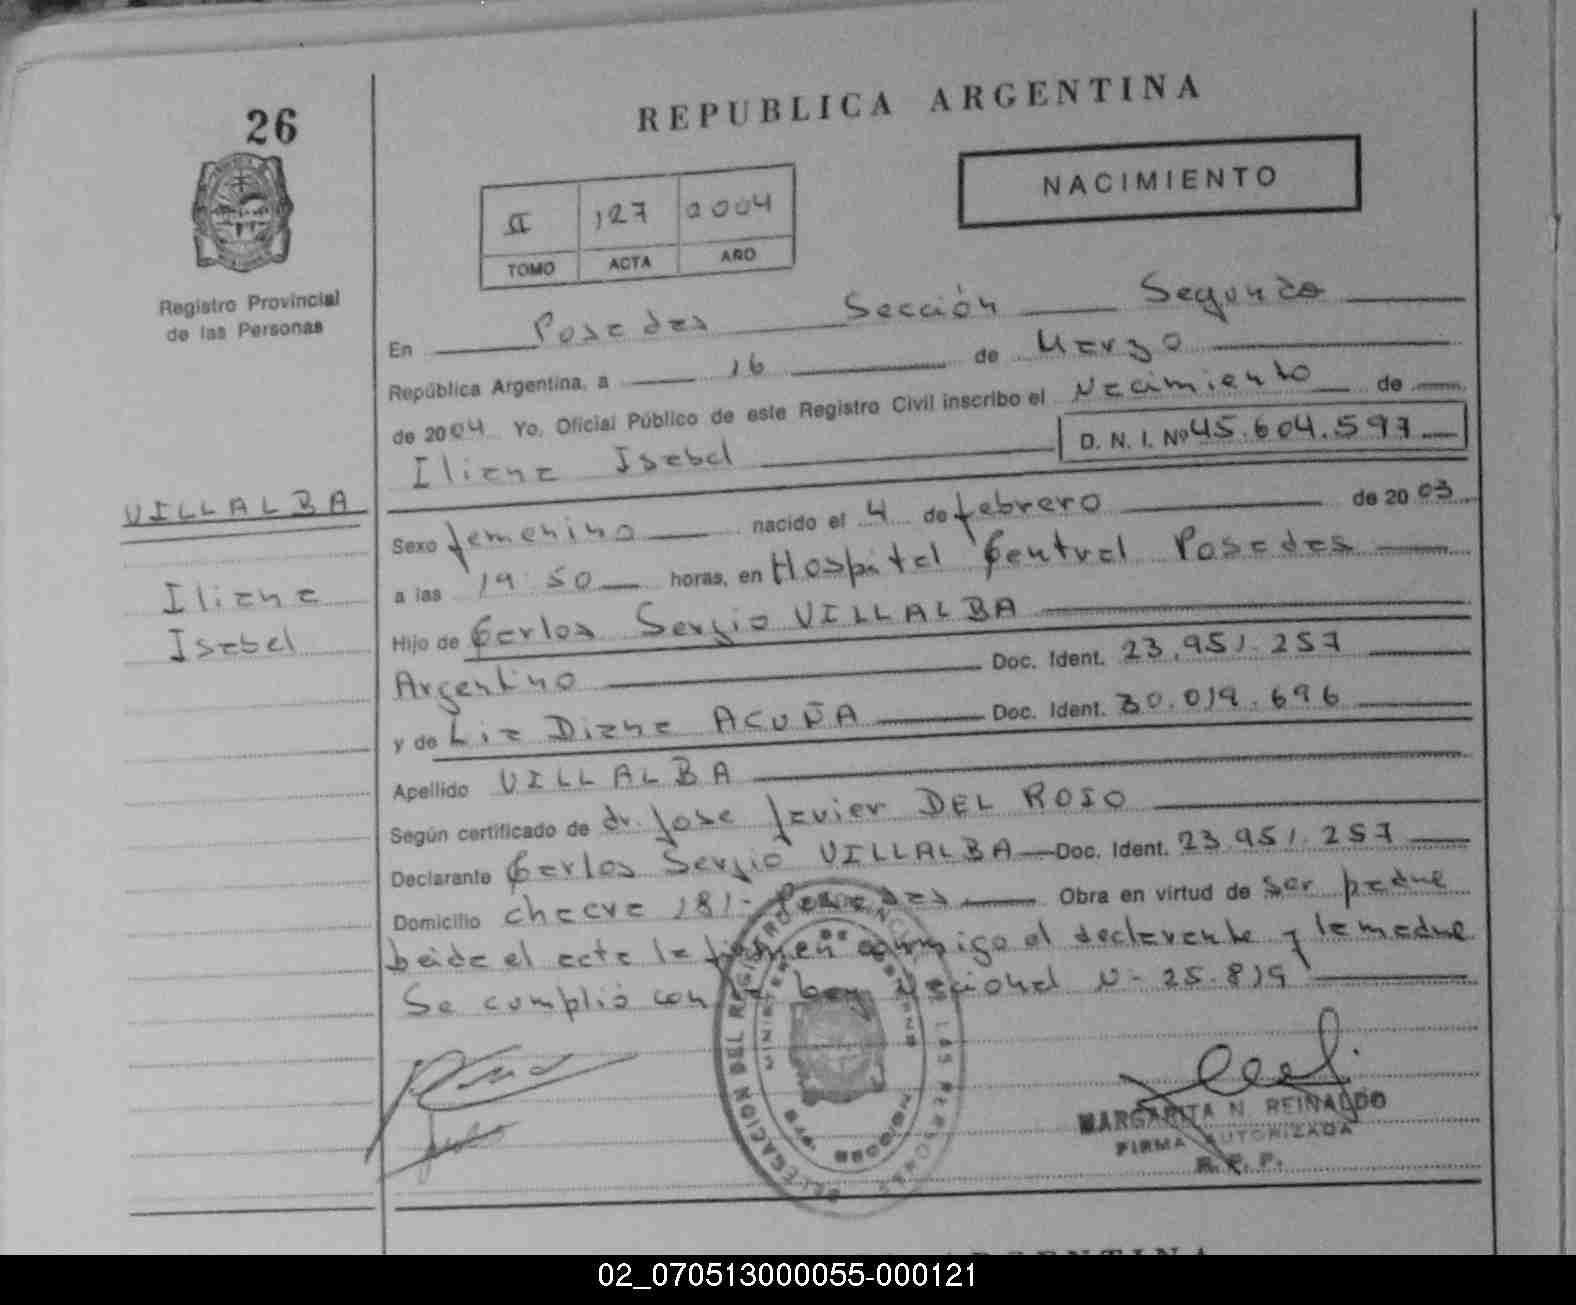 26
REPUBLICA ARGENTINA
NACIMIENTO
II 127 2004
TOMO ACTA AÑO
Registro Provincial
de las Personas
En Posadas Sección Segunda
República Argentina, a 16 de Marzo
de 2004 Yo, Oficial Público de este Registro Civil inscribo el Nacimiento de
Iliana Isabel D. N. I. Nº 45.604.597
VILLALBA
Iliana
Isabel
Sexo femenino nacido el 4 de febrero de 2003
a las 19:50 horas, en Hospital Central Posadas
Hijo de Carlos Sergio VILLALBA
Argentino Doc. Ident. 23.951.257
y de Diana ACUÑA Doc. Ident. 30.019.696
Apellido VILLALBA
Según certificado de dr. Jose Javier DEL ROSO
Declarante Carlos Sergio VILLALBA Doc. Ident. 23.951.257
Domicilio 181- Obra en virtud de ser padre
el acta la firman conmigo el declarante y la madre
Se cumplió con la Ley Nacional N- 25.819
DELEGACION DEL REGISTRO PROVINCIAL DE LAS PERSONAS
MARGARITA N. REINALDO
FIRMA AUTORIZADA
R. P. P.
ARGENTINA
02_070513000055-000121